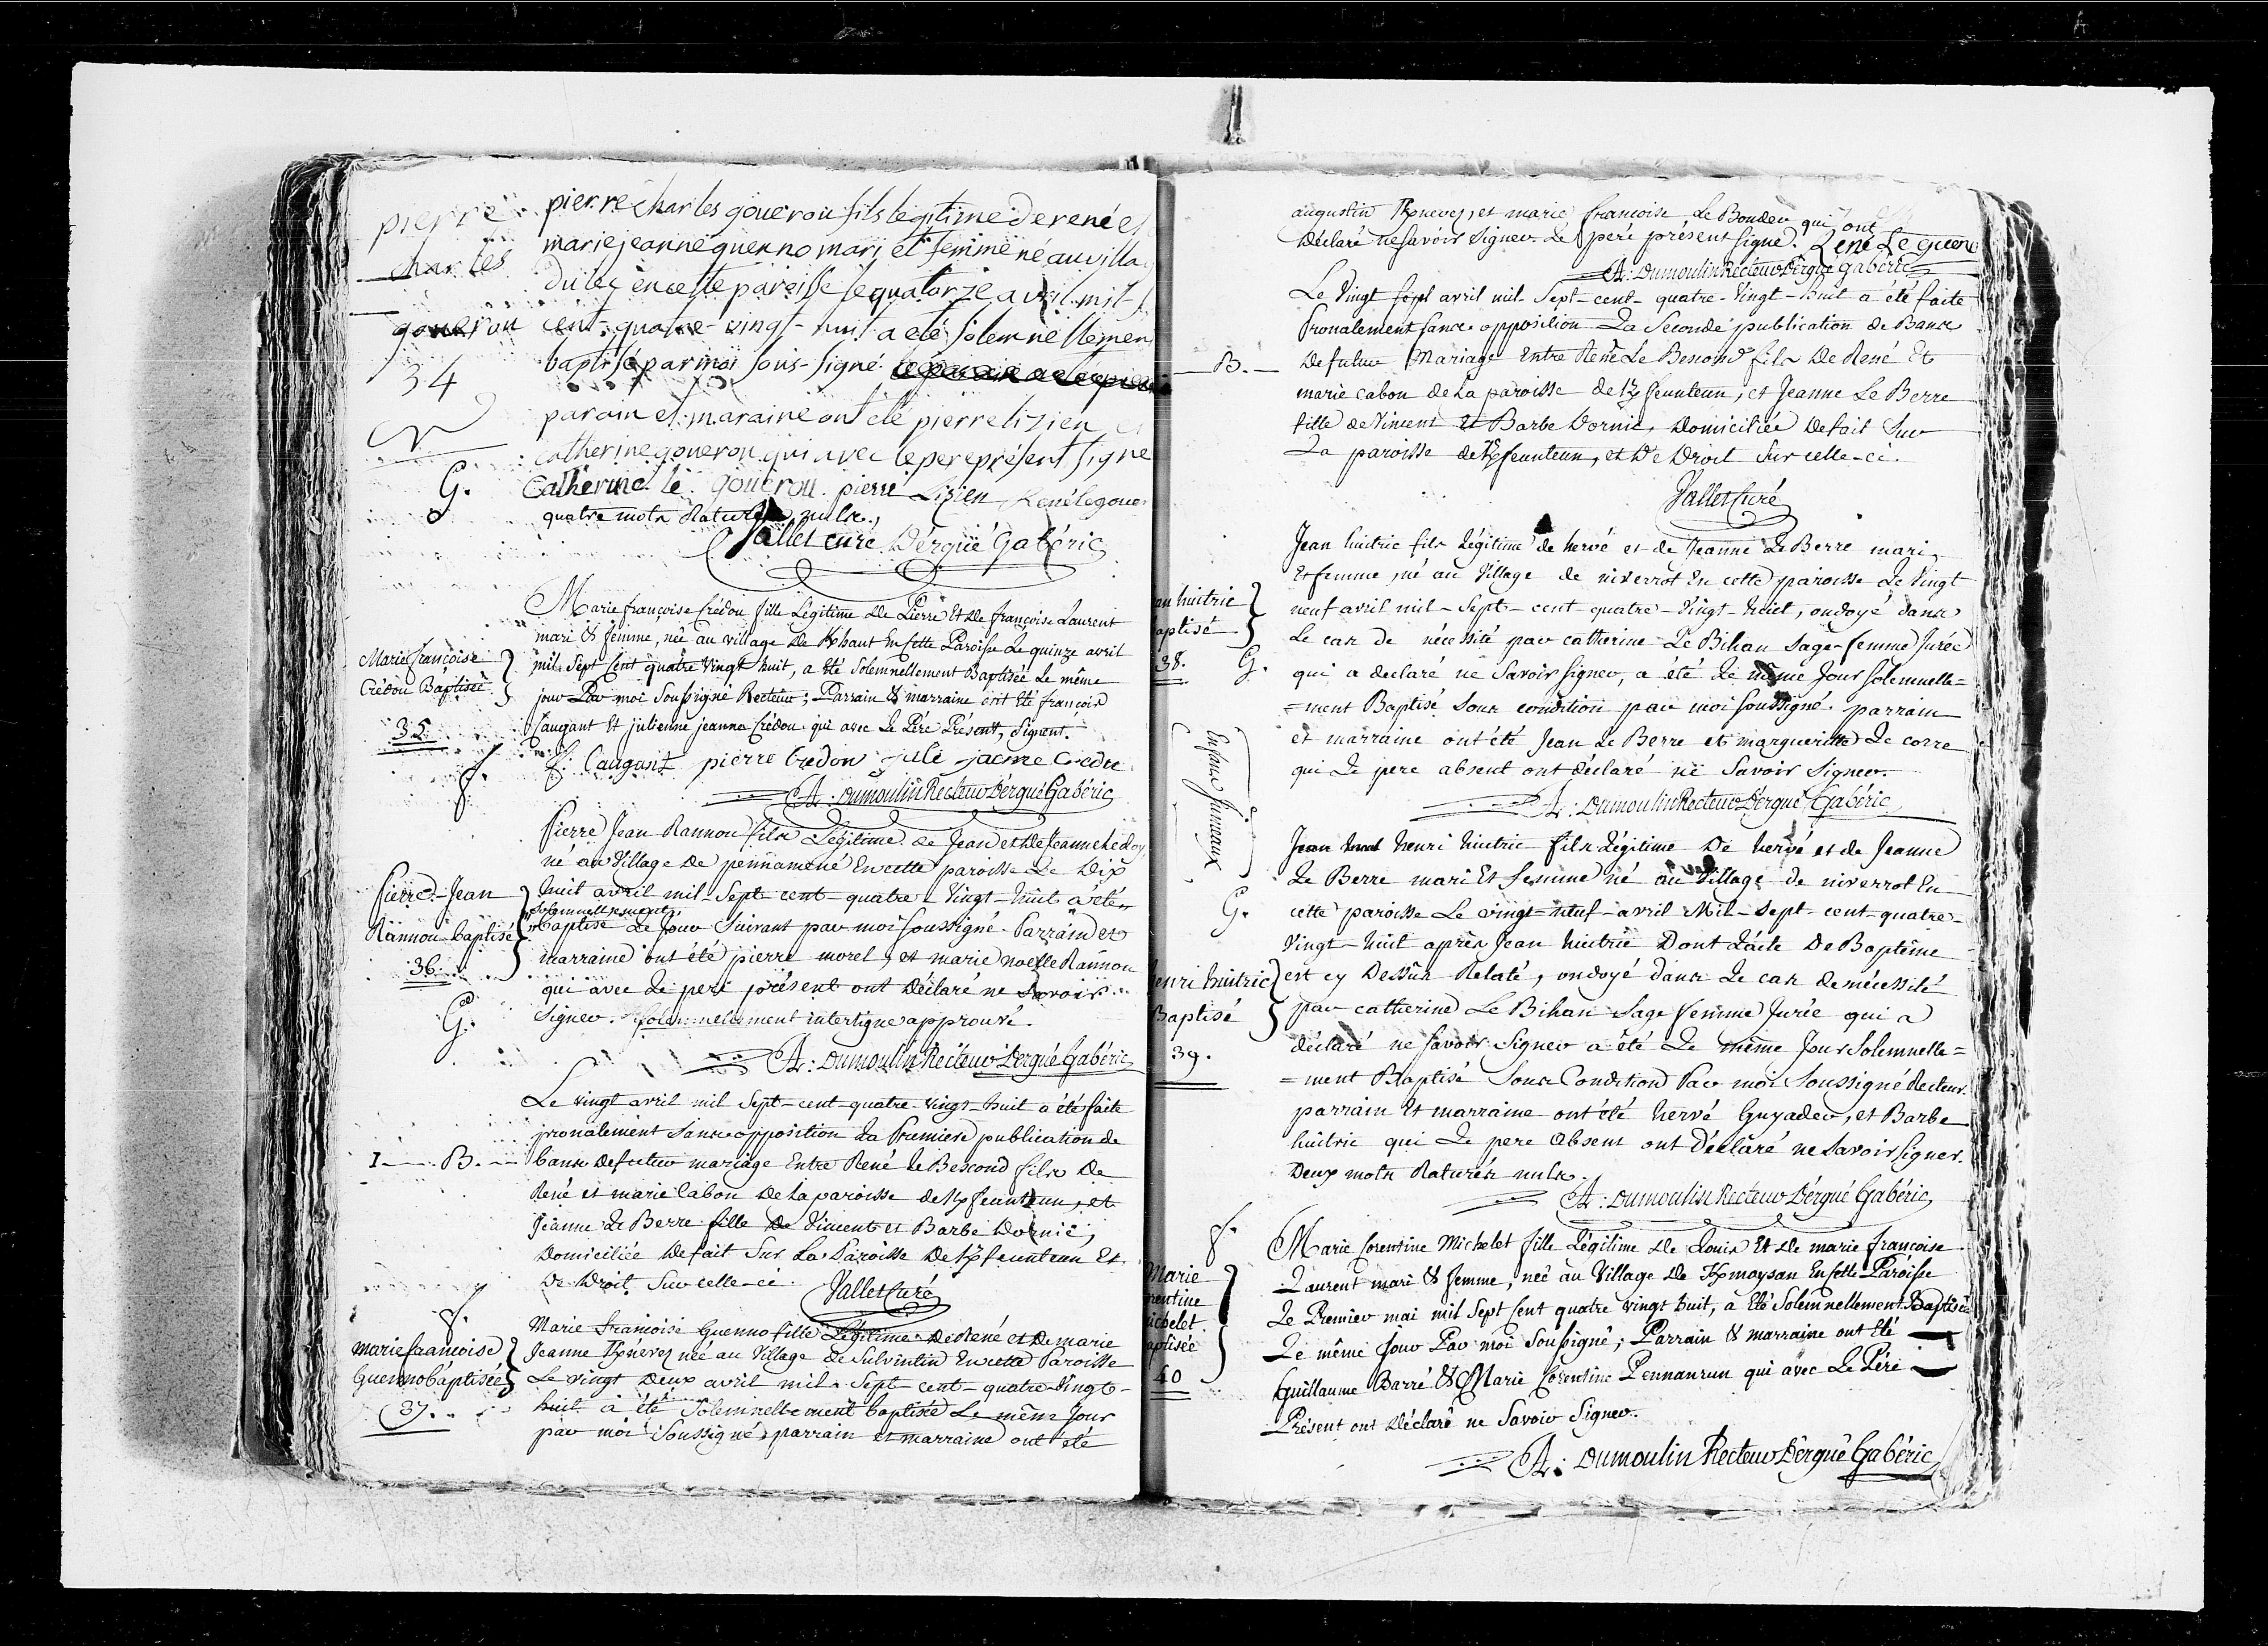 pierre
charles
goueron
34
G.
pierre charles goueron fils legitime de rené et
marie jeanne guenno mari et femme né au villa
du lez en cette paroisse le quatorze avril mil-
cent-quatre-vingt-huit a eté solemnellemen
baptisé par moi sous-signé
parain et maraine ont eté pierre lizien et
catherine goueron qui avec le pere présent signe
Catherine le goueron pierre Lizien René le goue
quatre mots Raturés nuls.,
Vallet curé Dérgué Gabéric
Marie françoise
Crédou Baptisée
35
f.
Marie françoise Crédou fille Légitime De Pierre Et De françoise Laurent
mari & femme, née au village De Kghaut En Cette Paroisse Le quinze avril
mil Sept Cent quatre Vingt huit, a Eté Solemnellement Baptisée Le même
jour Par moi Soussigné Recteur; Parrain & marraine ont Eté françois
Caugant Et julienne jeanne Crédou qui avec Le Péré Présent, Signent.
f: Caugant pierre Credou
A: Dumoulin Recteur Dérgué Gabéric
Pierre-Jean
Rannou baptisé
36.
G.
Pierre Jean Rannou fils Légitime de Jean et De Jeanne
né au Village De pennamené En cette paroisse Le Dix
huit avril mil-Sept-cent-quatre-Vingt-huit a été
Solemnellement
baptisé Le Jour Suivant par moi soussigné. Parrain et
marraine ont été pierre morel, et marie noelle Rannou
qui avec Le pere présent ont Déclaré ne Savoir
Signer. Solemnellement interligne approuvé.
A: Dumoulin Recteur Dergué Gabéric
1 - B.
Le vingt avril mil Sept-cent-quatre-vingt-huit a été faite
pronalement Sans opposition La Premiere publication de
bans De futur mariage Entre René Le Bescond fils De
René et marie Cabon De la paroisse de Kfeunteun, et
Jeanne Le Berre fille De Vincent et Barbe Dornic,
Domiciliée De fait Sur La Paroisse De Kfeunteun Et
De Droit Sur celle-ci. Vallet Curé
f.
marie francoise
Guenno baptisée
37.
Marie francoise Guenno fille Légitime De René et De marie
Jeanne Kgnevez née au Village de Sulvintin En cette Paroisse
Le vingt Deux avril mil-Sept-cent-quatre-Vingt-
huit a été Solemnellement baptisée Le même Jour
par moi Soussigné, parrain et marraine ont été
augustin Kgnevez, et marie francoise Le Bouder qui ont
Déclaré ne Savoir Signer. Le peré présent Signe. René Le guen
A: Dumoulin Recteur Dérgué Gabéric
B.
Le Vingt Sept avril mil-Sept-cent-quatre-Vingt-huit a été faite
Pronalement sans opposition La Seconde publication de Bans
De futur Mariage Entre René Le Bescond fils De René Et
marie cabon de La paroisse de Kfeunteun, et Jeanne Le Berre
fille de Vincent Et Barbe Dornic, Domiciliée De fait Sur
La paroisse de Kfeunteun, et De Droit Sur celle-ci.
Vallet Curé
an huitric
aptisé
38.
G.
Jean huitric fils Légitime de hervé et de Jeanne Le Berre mari
Et femme, né au Village de niverrot En cette paroisse Le Vingt
neuf avril mil-Sept-cent quatre-Vingt-huit, ondoyé dans
Le cas de nécessité par catherine Le Bihan Sage-femme Jurée
qui a declaré ne Savoir signer, a été Le même Jour solemnelle=
=ment Baptisé Sous condition par moi soussigné. parrain
et marraine ont été Jean Le Berre et margueritte Le corre
qui Le pere absent ont déclaré ne Savoir Signer.
A: Dumoulin Recteur Dérgué Gabéric
Enfans Jumeaux
G.
enri huitric
Baptisé
39.
Jean henri huitric fils Légitime De hervé et de Jeanne
Le Berre mari Et femme né au Village de niverrot En
cette paroisse Le vingt=neuf-avril Mil-Sept-cent-quatre-
Vingt-huit après Jean huitric Dont L'acte De Baptême
est cy Dessus Relaté, ondoyé dans Le cas de nécessité
par catherine Le Bihan Sage femme Jurée qui a
déclaré ne Savoir Signer a été Le même Jour Solemnelle=
=ment Baptisé Sous Condition Par moi Soussigné Recteur.
parrain Et marraine ont été hervé Guyader, et Barbe
huitric qui Le pere Absent ont Déclaré ne Savoir Signer.
Deux mots Raturés nuls.
A: Dumoulin Recteur Dérgué Gabéric
f.
Marie
rentine
ichelet
aptisée
40
Marie Corentine Michelet fille Légitime De Louis Et De marie françoise
Laurent mari & femme, née au Village De Kmaysan En Cette Paroisse
Le Premier mai mil Sept Cent quatre vingt huit, a Eté Solemnellement Baptisée
Le même Jour Par moi Soussigné; Parrain & marraine ont Eté
Guillaume Barré & Marie Corentine Pennanrun qui avec Le Péré
Présent ont Déclaré ne Savoir Signer.
A: Dumoulin Recteur Dérgué Gabéric